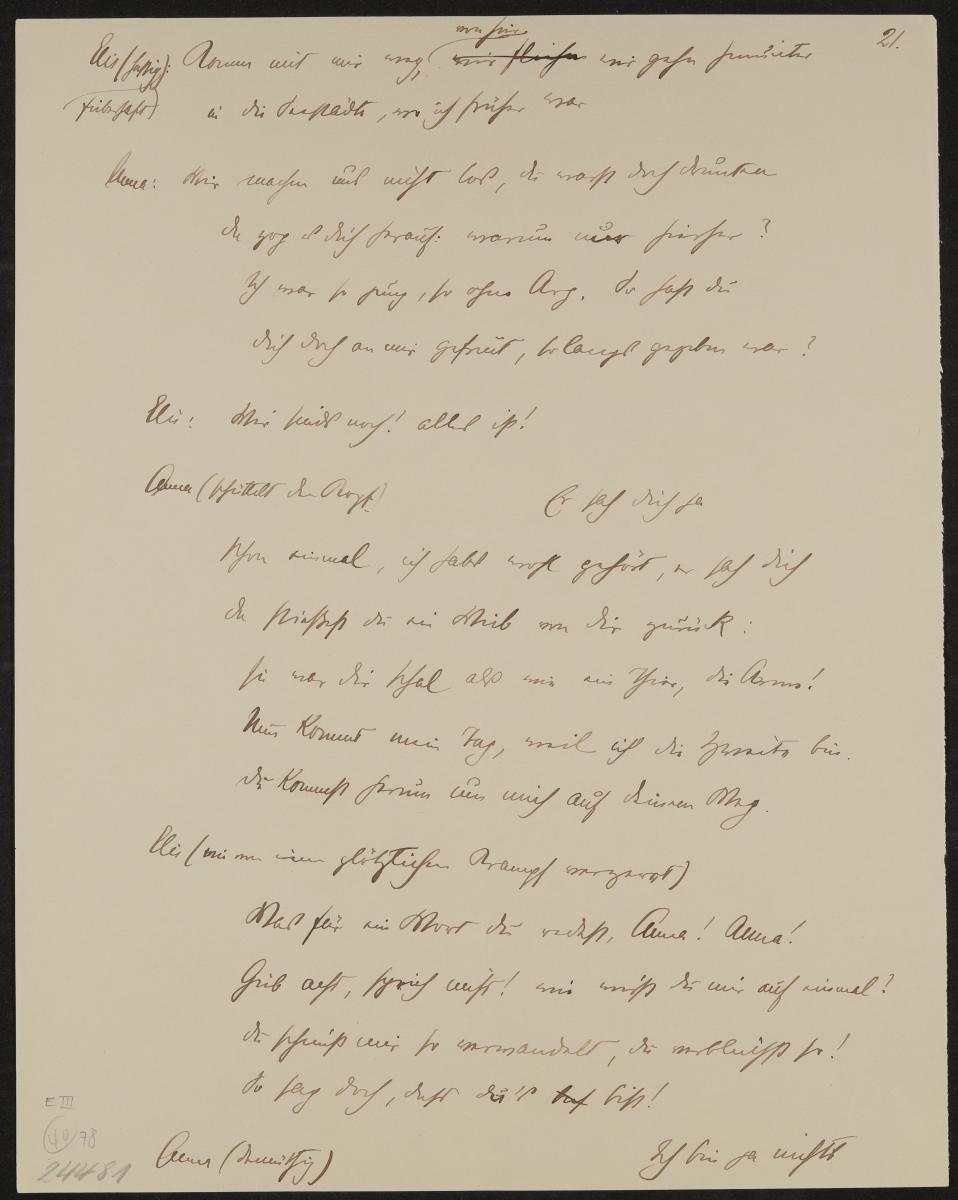 von hier
21.
Elis (hastig): Komm mit mir weg, wir fliehen wir gehn hinunter
fieberhaft)
in die Seestädte, wo ich früher war
Anna: Wir machen uns nicht los, du warst doch drunten
da zog es dich herauf: warum nur hierher?
Ich war so jung, so ohne Arg. So hast du
dich doch an mir gefreut, solangs gegeben war?
Elis: Wir sinds noch! alles ist!
Anna (schüttelt den Kopf) Er sah dich ja
schon einmal, ich habs wohl gehört, er sah dich
da stießest du ein Weib von dir zurück:
sie war dir schal als wie ein Thier, die Arme!
Nun kommt mein Tag, weil ich die Zweite bin.
du kommst herum um mich auf deinem Weg.
Elis (wie von einem plötzlichen Krampf verzerrt)
Was für ein Wort du redest, Anna! Anna!
Gib acht, sprich nicht! wie wirst du mir auf einmal?
du scheinst mir so verwandelt, du verbleichst so!
So sag doch, dass du's bist!
Anna (demüthig) Ich bin ja nichts
E III
40 78
24481